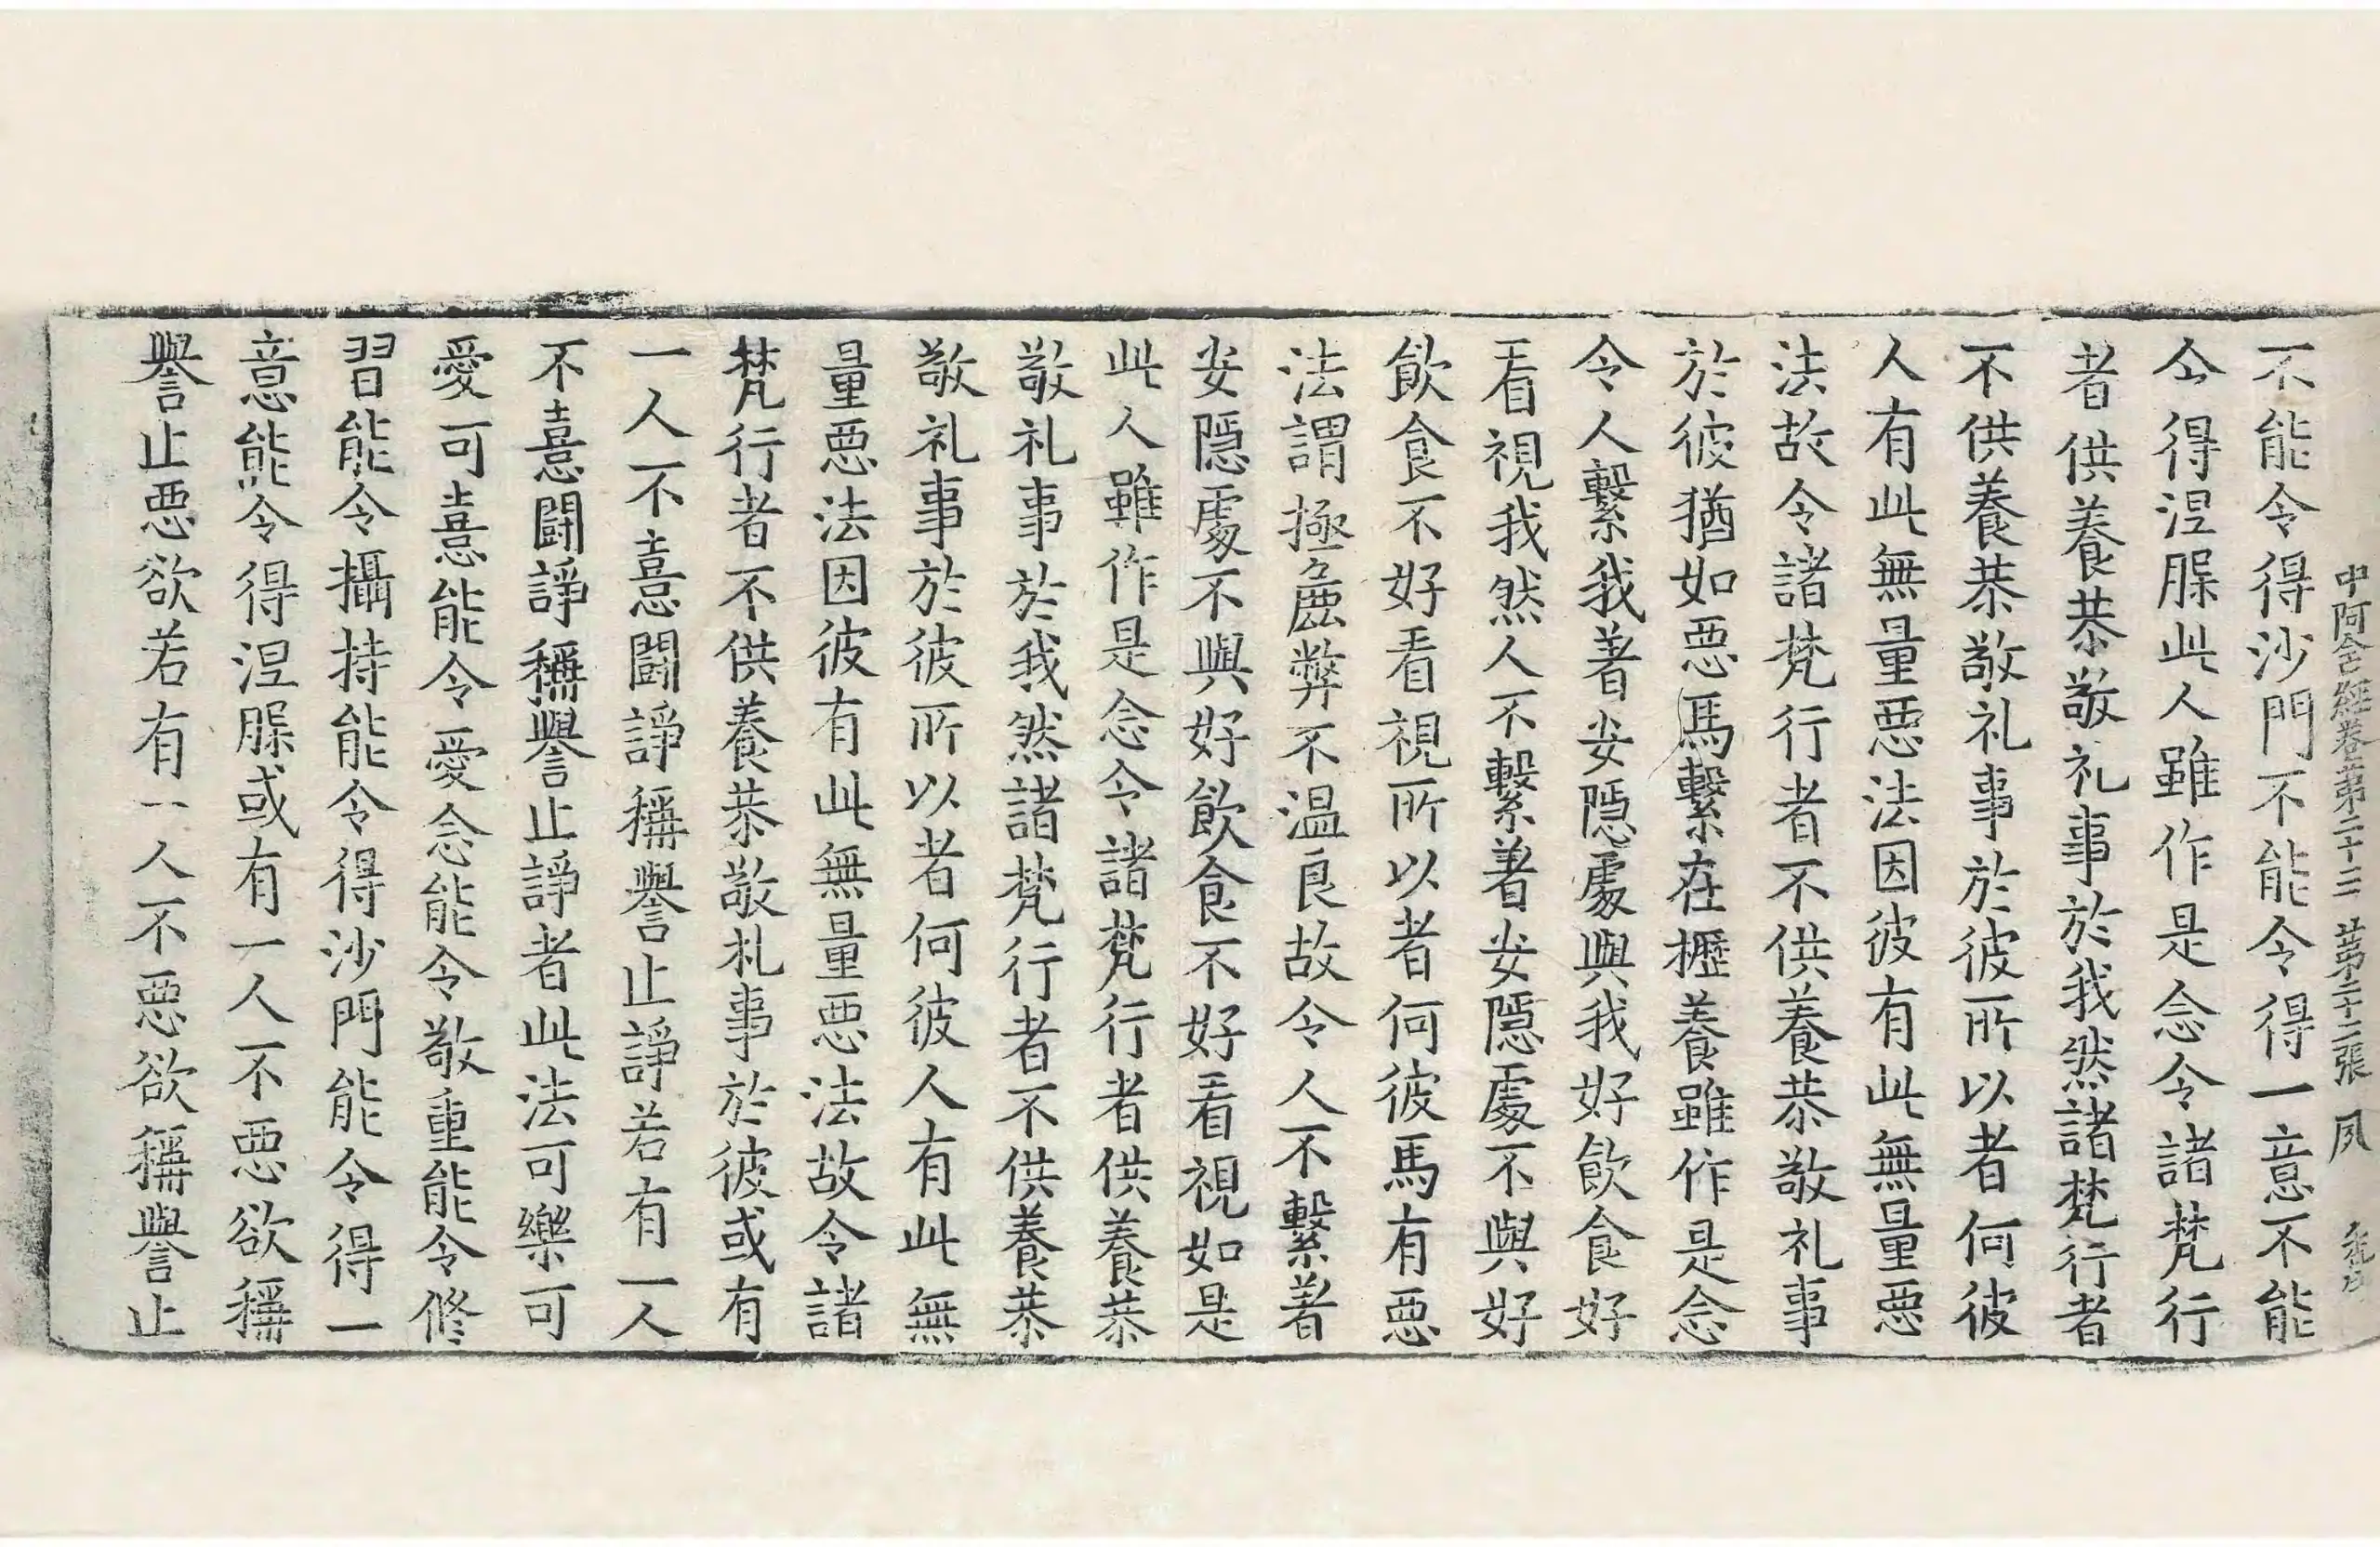 中阿含經卷第二十三 第二十二張 夙
不能令得沙門不能令得一意不能
令得涅脲此人雖作是念令諸梵行
者供養恭敬礼事於我然諸梵行者
不供養恭敬礼事於彼所以者何彼
人有此無量惡法因彼有此無量惡
法故令諸梵行者不供養恭敬礼事
於彼猶如惡馬繫在櫪養雖作是念
令人繫我著安隱處與我好飲食好
看視我然人不繫著安隱處不與好
飲食不好看視所以者何彼馬有惡
法謂極麁弊不温良故令人不繫著
安隱處不與好飲食不好看視如是
此人雖作是念令諸梵行者供養恭
敬礼事於我然諸梵行者不供養恭
敬礼事於彼所以者何彼人有此無
量惡法因彼有此無量惡法故令諸
梵行者不供養恭敬礼事於彼或有
一人不憙鬪諍稱譽止諍若有一人
不憙鬪諍稱譽止諍者此法可樂可
愛可憙能令愛念能令敬重能令修
習能令攝持能令得沙門能令得一
意能令得涅脲或有一人不惡欲稱
譽止惡欲若有一人不惡欲稱譽止